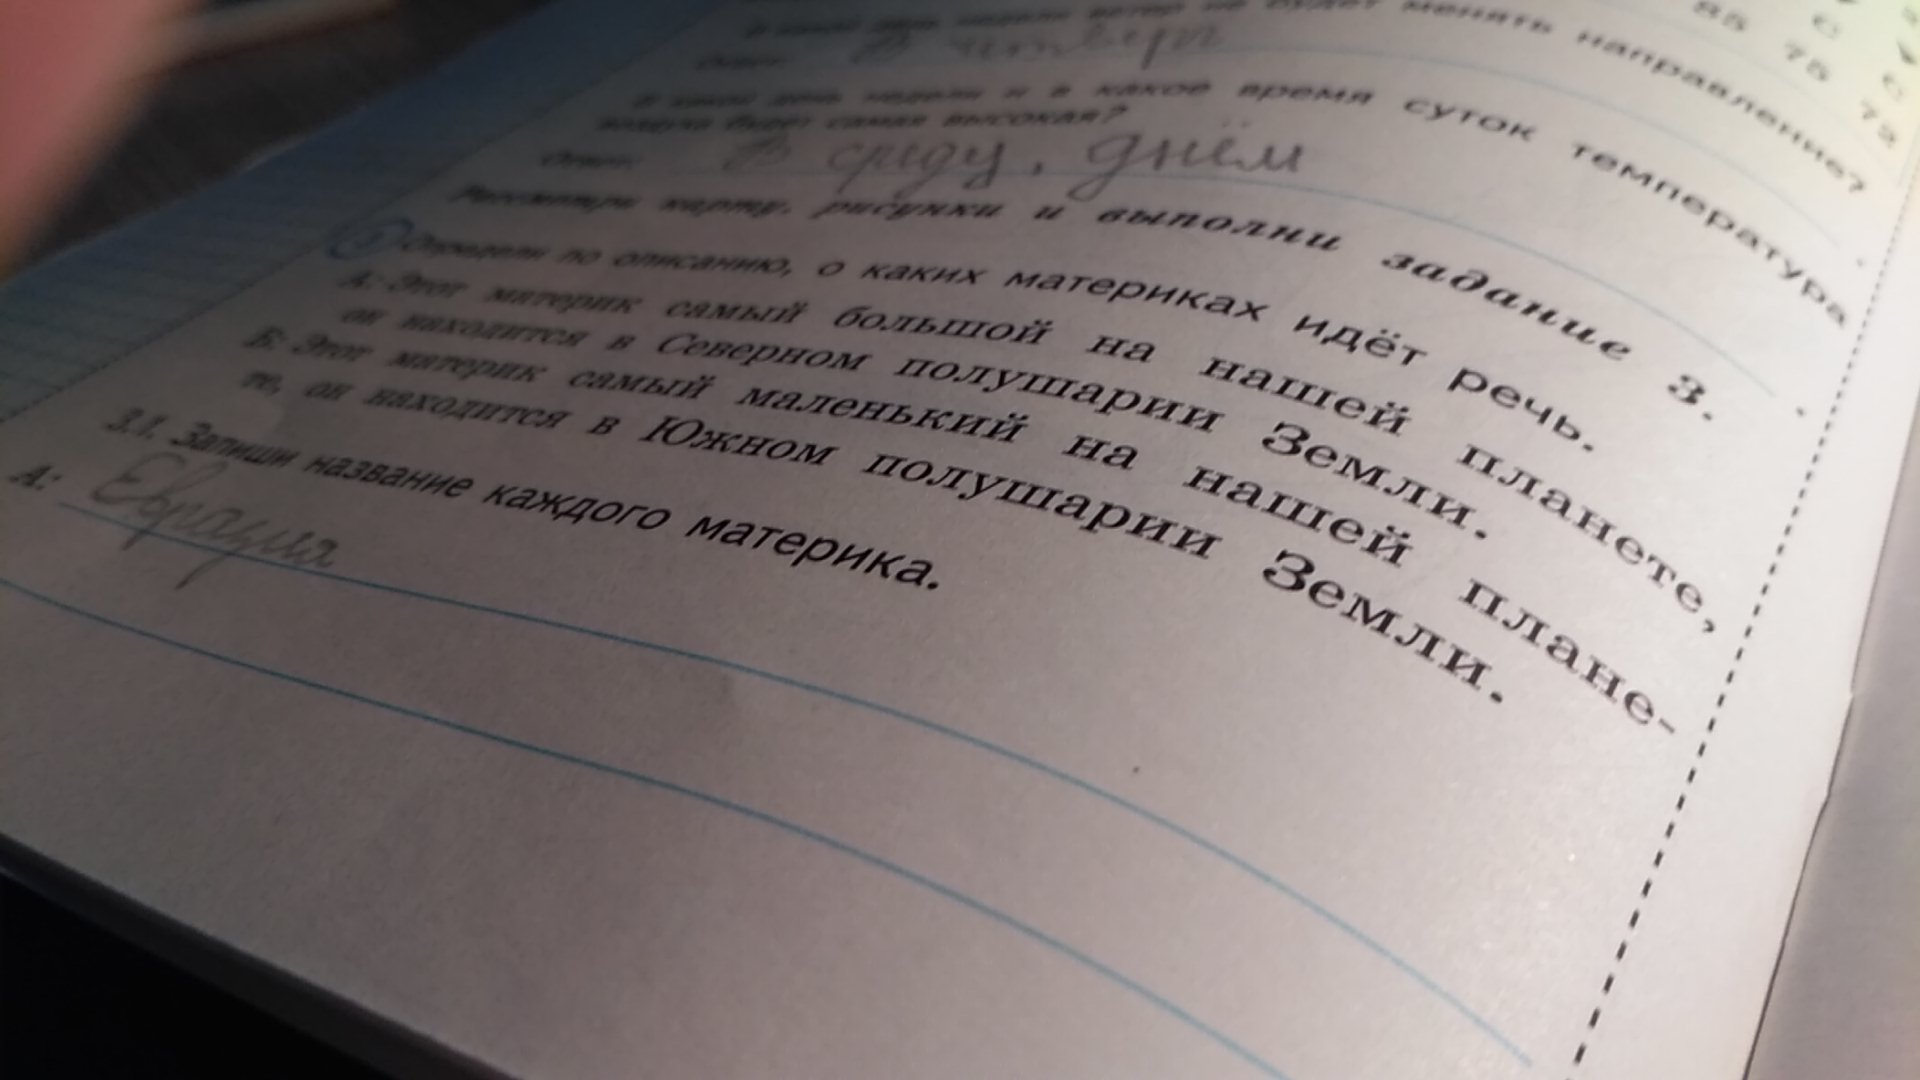 85 75 С
С 73
В какой день недели ветер не будет менять направление?
Ответ: В четверг
В какой день недели и в какое время суток температура
воздуха будет самая высокая?
Ответ: В среду, днём .
Рассмотри карту, рисунки и выполни задание 3.
3 Определи по описанию, о каких материках идёт речь.
А: Этот материк самый большой на нашей планете,
он находится в Северном полушарии Земли.
Б: Этот материк самый маленький на нашей плане-
те, он находится в Южном полушарии Земли.
3.1. Запиши название каждого материка.
А: Евразия